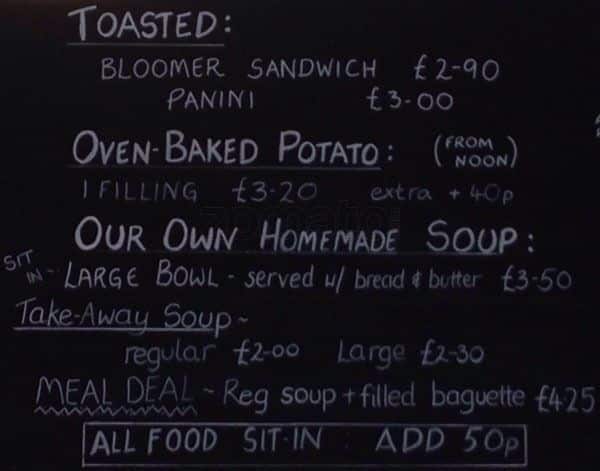 TOASTED:
BLOOMER SANDWICH £2-90
PANINI £3-00
OVEN-BAKED POTATO: (FROM NOON)
1 FILLING £3-20 extra + 40p
OUR OWN HOMEMADE SOUP:
SIT IN - LARGE BOWL - served w/ bread & butter £3-50
Take-Away Soup ~
regular £2-00 Large £2-30
MEAL DEAL ~ Reg soup + filled baguette £4.25
ALL FOOD SIT-IN : ADD 50p